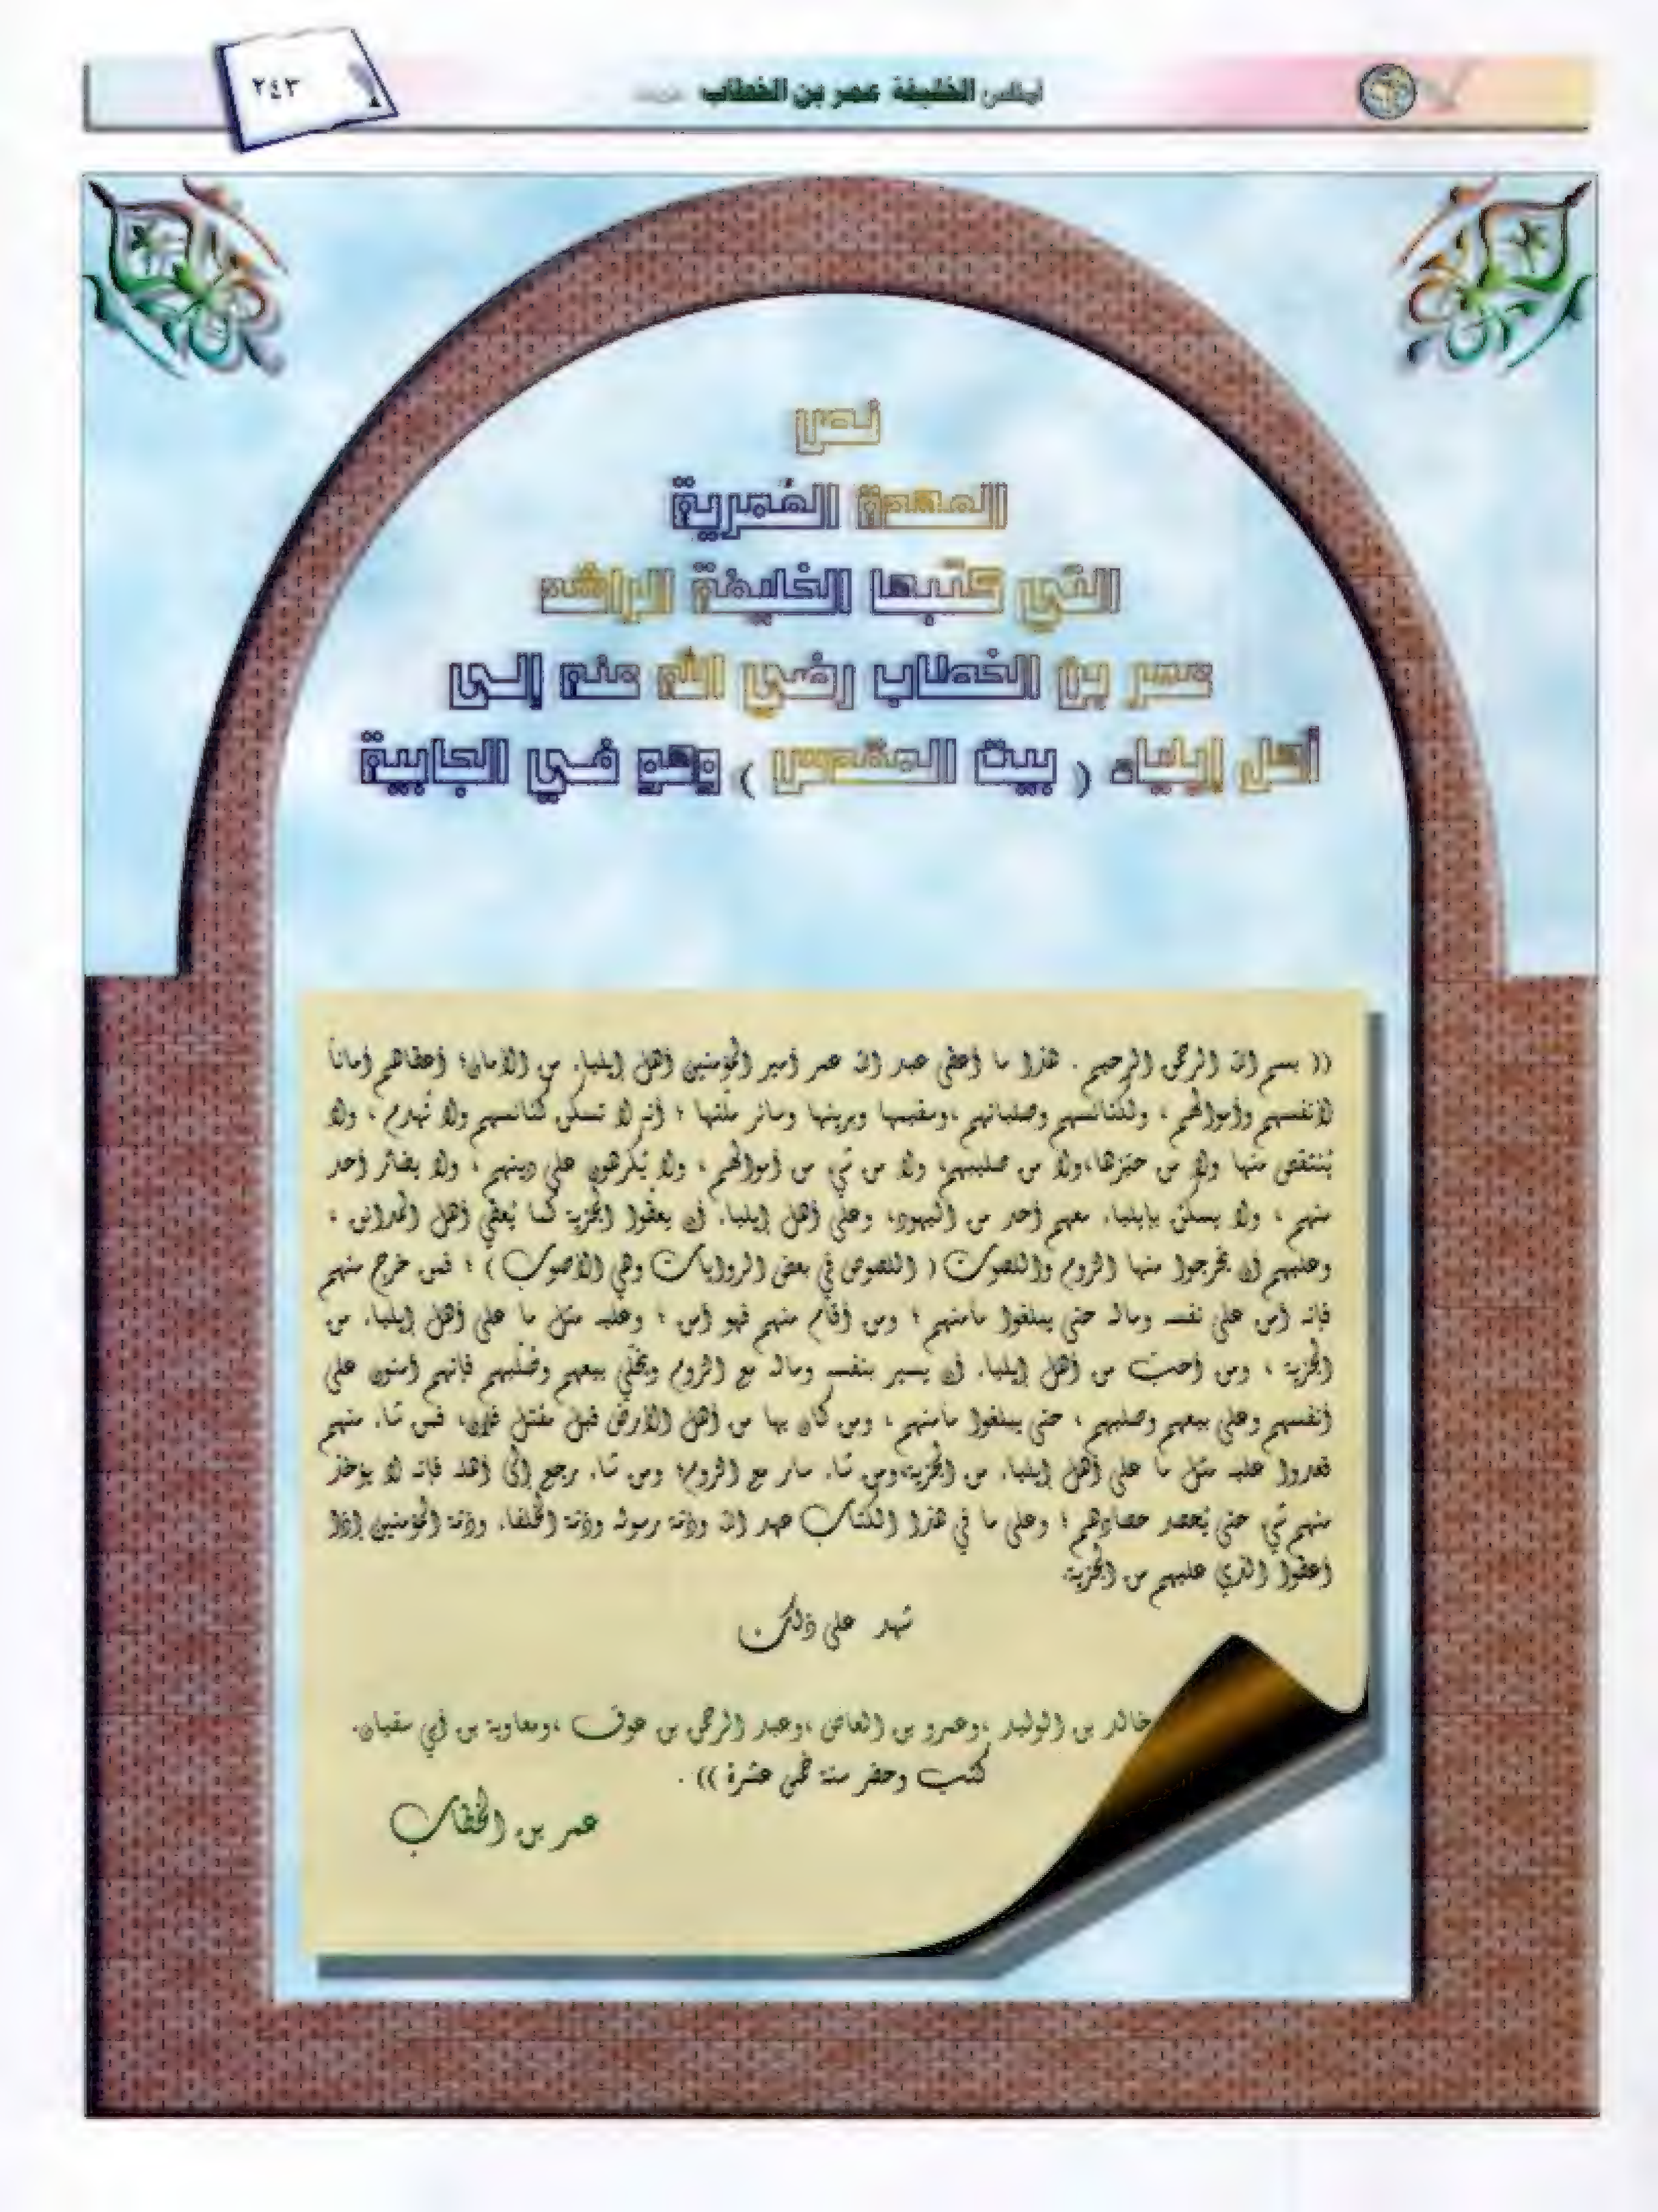 أطلس الخليفة عمر بن الخطاب
٢٤٣
نص
العهدة العُمرية
التي كتبها الخليفة الراشد
عمر بن الخطاب رضي الله عنه إلى
أهل إيلياء ( بيت المقدس ) وهو في الجابية
(( بسم الله الرحمن الرحيم . هذا ما أعطى عبد الله عمر أمير المؤمنين أهل إيلياء من الأمان؛ أعطاهم أماناً
لأنفسهم وأموالهم ، ولكنائسهم وصلبانهم ،وسقيمها وبريئها وسائر ملّتها ؛ أنه لا تسكن كنائسهم ولا تُهدم ، ولا
يُنتقص منها ولا من حيّزها،ولا من صليبهم، ولا من شيء من أموالهم ، ولا يُكرهون على دينهم ، ولا يضارّ أحد
منهم ، ولا يسكن بإيلياء معهم أحد من اليهود، وعلى أهل إيلياء أن يعطُوا الجزية كما يُعطي أهل المدائن ،
وعليهم أن يخرجوا منها الروم واللصوت ( اللصوص في بعض الروايات وهي الأصوب ) ؛ فمن خرج منهم
فإنه آمن على نفسه وماله حتى يبلغوا مأمنهم ؛ ومن أقام منهم فهو آمن ؛ وعليه مثل ما على أهل إيلياء من
الجزية ، ومن أحبّ من أهل إيلياء أن يسير بنفسه وماله مع الروم ويخلّي بيعهم وصُلُبهم فإنهم آمنون على
أنفسهم وعلى بيعهم وصلبهم ، حتى يبلغوا مأمنهم ، ومن كان بها من أهل الأرض قبل مقتل فلان، فمن شاء منهم
قعدوا عليه مثل ما على أهل إيلياء من الجزية،ومن شاء سار مع الروم؛ ومن شاء رجع إلى أهله فإنه لا يؤخذ
منهم شيء حتى يُحصد حصادهم ؛ وعلى ما في هذا الكتاب عهد الله وذمّة رسوله وذمّة الخلفاء وذمّة المؤمنين إذا
أعطوا الذي عليهم من الجزية.
شهد على ذلك
خالد بن الوليد ،وعمرو بن العاص ،وعبد الرحمن بن عوف ،ومعاوية بن أبي سفيان.
كتب وحضر سنة خمس عشرة )) .
عمر بن الخطاب